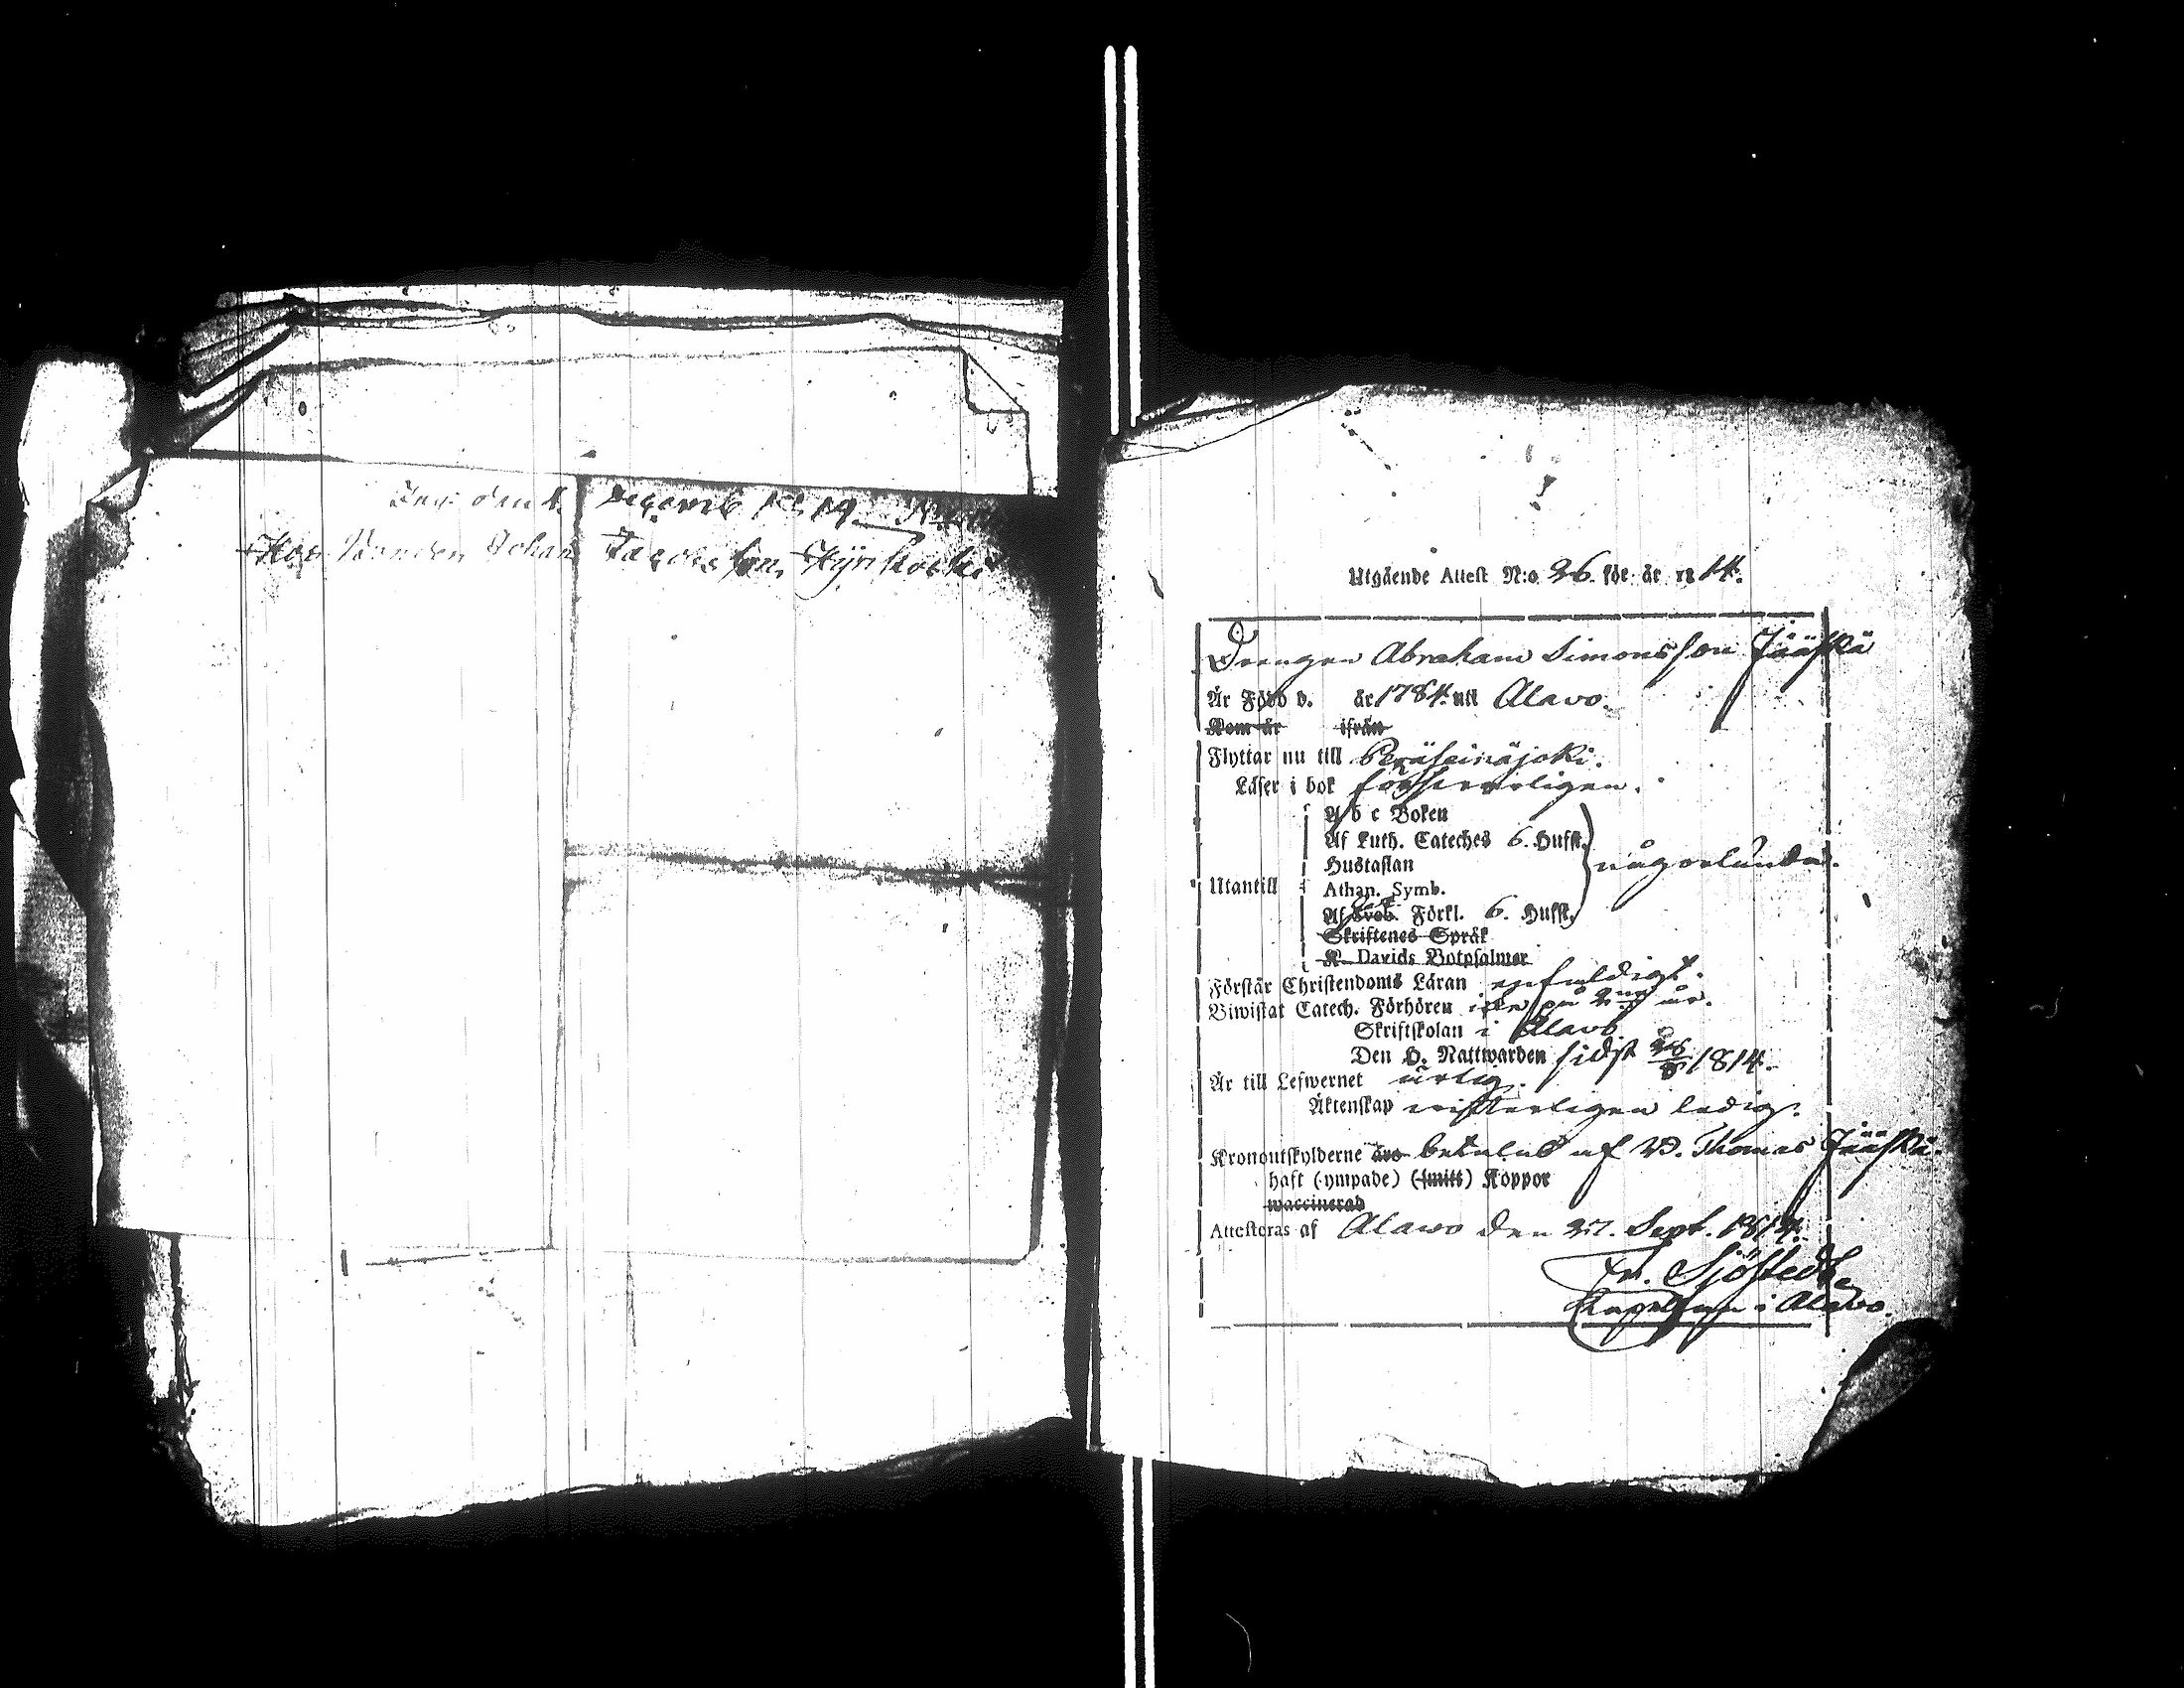 Ing: den 1. Decemb 1819
Hos Bonden Johan Jacobsson Kyrkoski
Utgående Attest N:o 26. för år 1814.
Drengen Abraham Simonsson Jääskä
Är Född d. år 1784. uti Alavo.
Kom år ifrån
Flyttar nu till Peräseinäjoki.
Läser i bok försvarligen.
A b c Boken
Af Luth. Cateches 6. Hufst.
Hustaflan
någorlunda.
Utantill
Athan. Symb.
Af Förkl. 6. Hufst.
Skriftenes Språk
K. Davids Botpsalmer
Förstår Christendoms Läran enfaldigt.
Biwistat Catech. Förhören icke på år.
Skriftskolan i Alavo
Den H. Nattwarden sidst 28/8 1814.
Är till Lefwernet ärlig.
Äktenskap wisserligen ledig.
Kronoutskylderne äro betalat af Thomas Jääskä.
haft (ympade) (smitt) Koppor
waccinerad
Attesteras af Alawo den 27. Sept. 1814.
Fr. Sjöstedt.
Kapellan i Alavo.